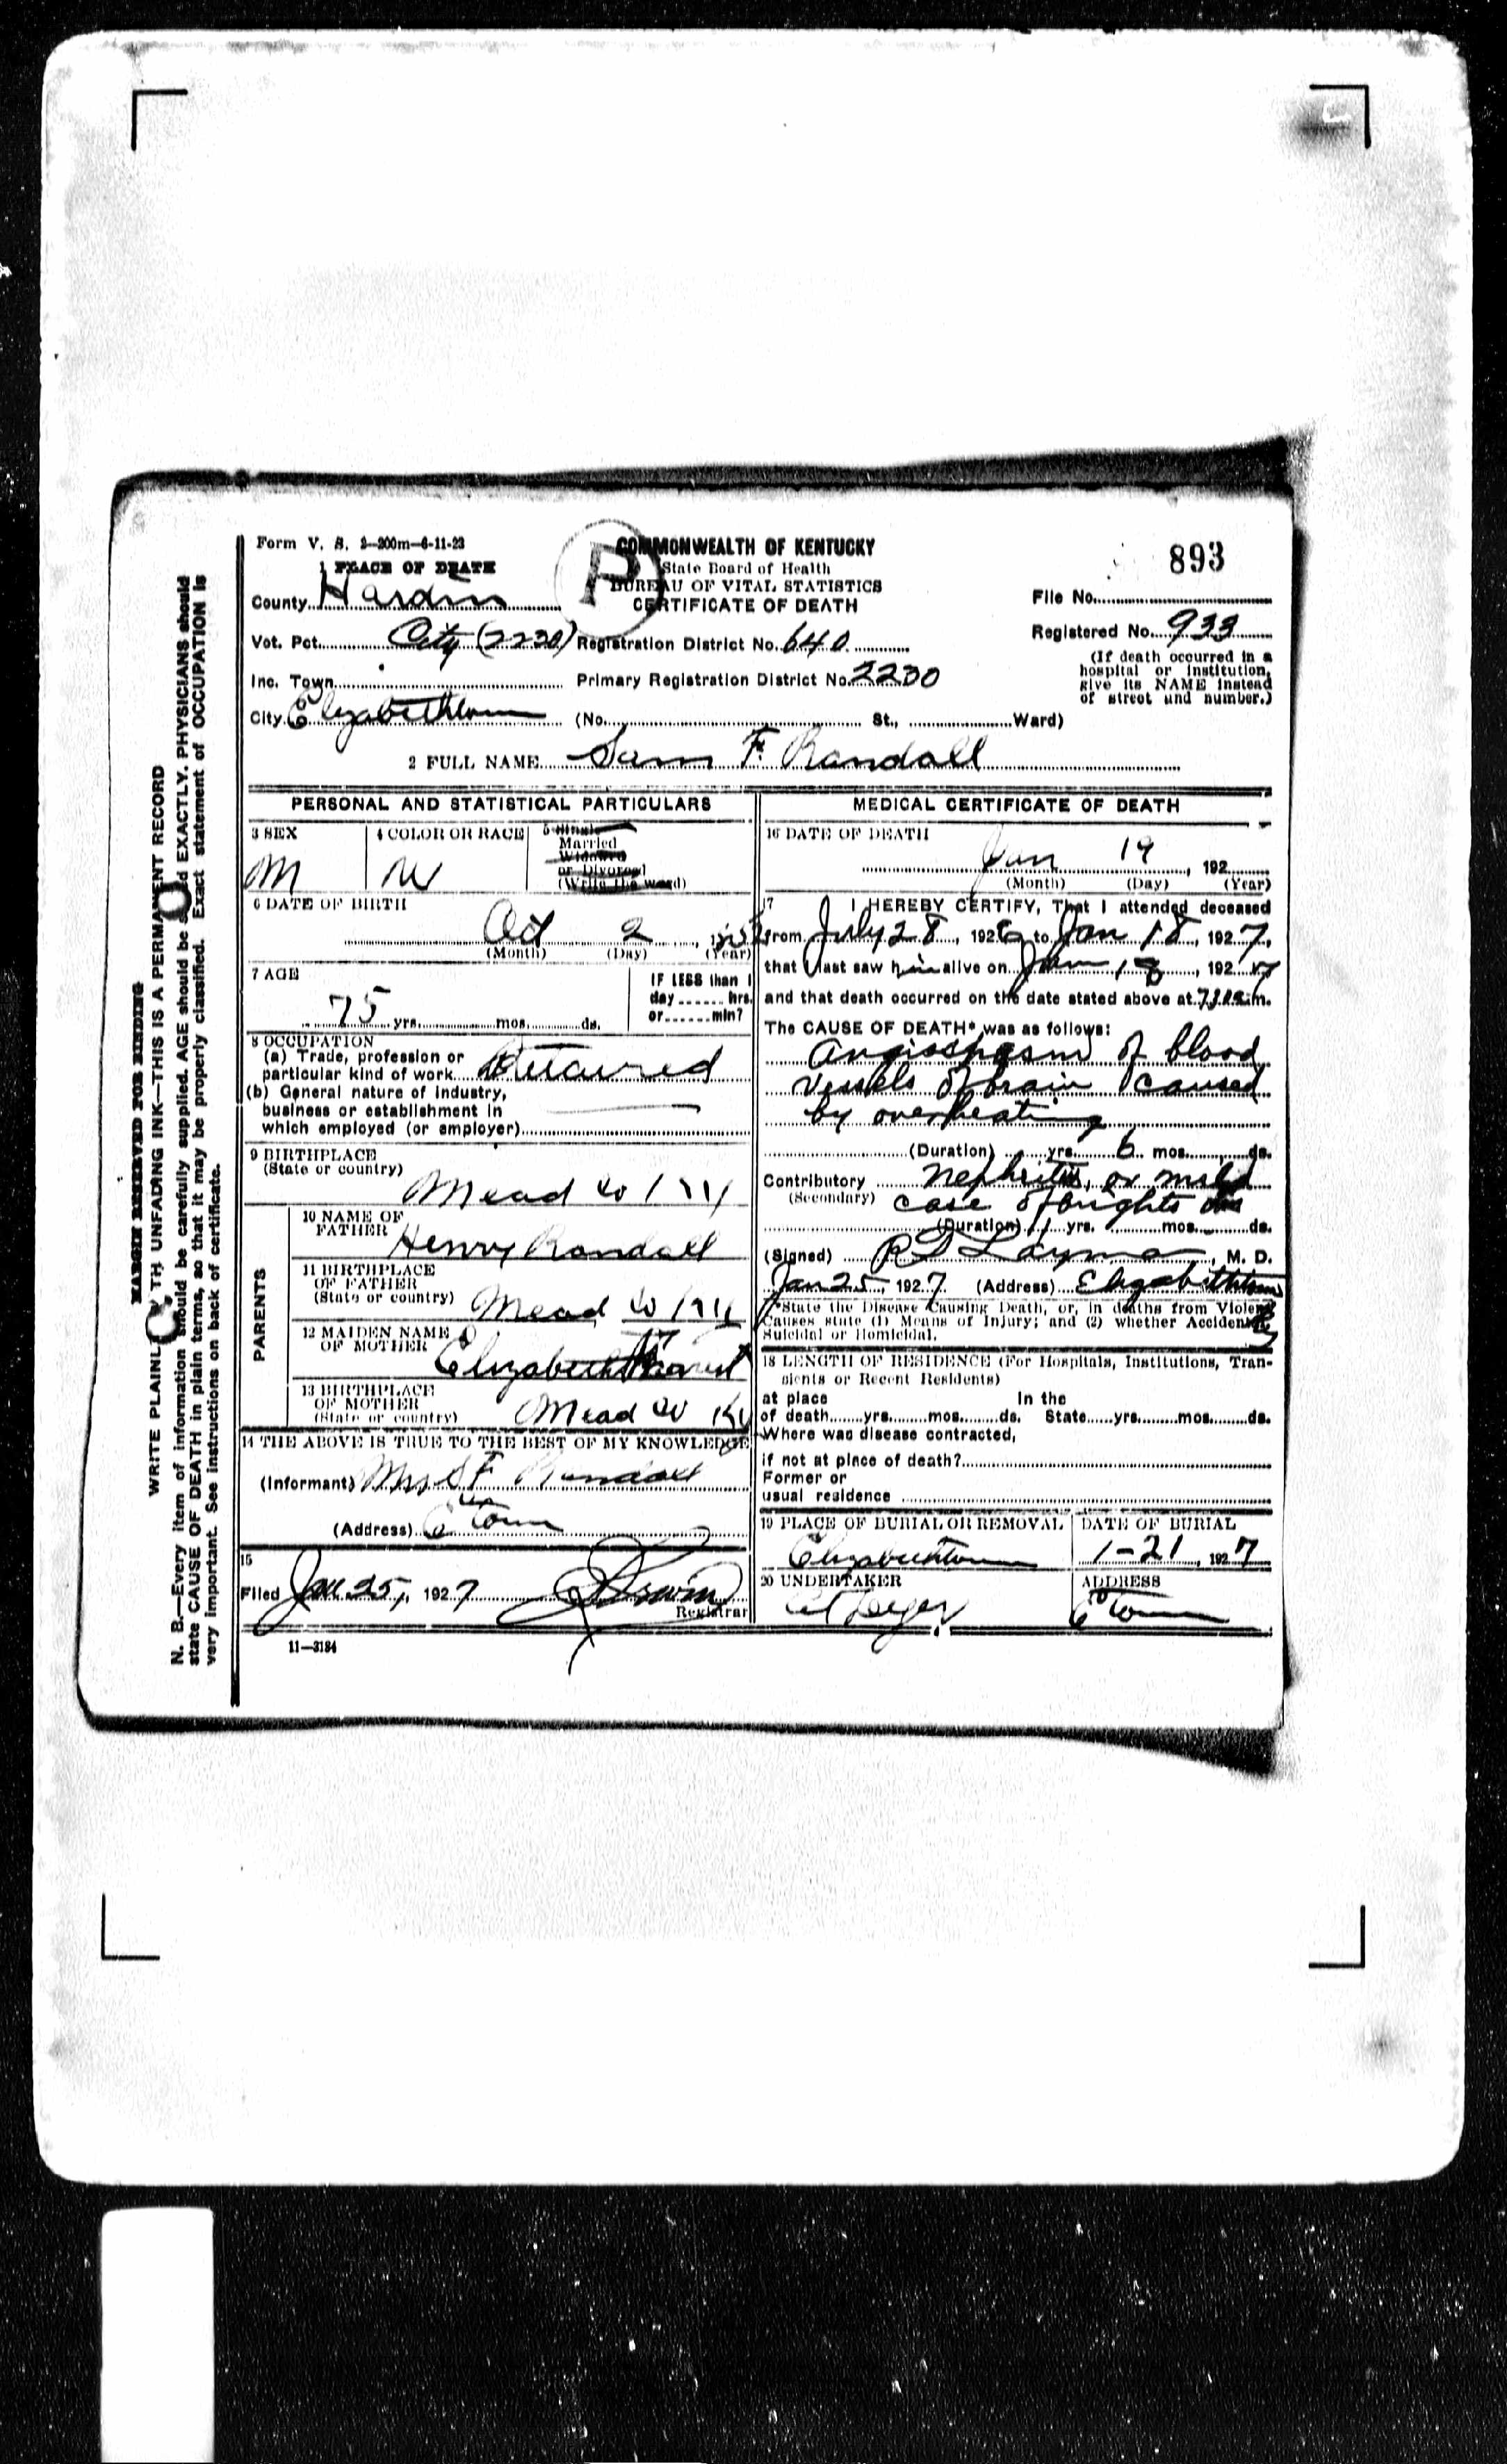 Form V. S. 2—200m—6-11-23
COMMONWEALTH OF KENTUCKY
State Board of Health
BUREAU OF VITAL STATISTICS
CERTIFICATE OF DEATH
P
893
1 PLACE OF DEATH
County Hardin
File No.
Vot. Pct. City (2230) Registration District No. 640
Registered No. 933
(If death occurred in a
hospital or institution,
give its NAME instead
of street and number.)
Inc. Town Primary Registration District No. 2230
City Elizabethtown (No. St., Ward)
2 FULL NAME Sam F. Randall
PERSONAL AND STATISTICAL PARTICULARS
3 SEX
M
4 COLOR OR RACE
W
5 Single
Married
Widowed
or Divorced
(Write the word)
6 DATE OF BIRTH
Oct 2
(Month) (Day) (Year)
7 AGE
75 yrs. mos. ds.
IF LESS than 1
day hrs.
or min?
8 OCCUPATION
(a) Trade, profession or
particular kind of work
(b) General nature of industry,
business or establishment in
which employed (or employer)
9 BIRTHPLACE
(State or country)
Mead Co Ky
PARENTS
10 NAME OF
FATHER
Henry Randall
11 BIRTHPLACE
OF FATHER
(State or country)
Mead Co Ky
12 MAIDEN NAME
OF MOTHER
Elizabeth
13 BIRTHPLACE
OF MOTHER
(State or country)
Mead Co Ky
14 THE ABOVE IS TRUE TO THE BEST OF MY KNOWLEDGE
(Informant) Mrs S F Randall
(Address) E town
15
Filed Jan 25, 1927
Registrar
11—3184
MEDICAL CERTIFICATE OF DEATH
16 DATE OF DEATH
Jan 19, 192
(Month) (Day) (Year)
17 I HEREBY CERTIFY, That I attended deceased
from July 28, 1926 to Jan 18, 1927,
that I last saw him alive on Jan 18, 1927
and that death occurred on the date stated above at m.
The CAUSE OF DEATH* was as follows:
Angiospasm of blood
vessels of brain caused
by overheating
(Duration) yrs. 6 mos. ds.
Contributory nephritis, or mild
(Secondary)
case of brights dis
(Duration) 1 yrs. mos. ds.
(Signed) R T Layman, M. D.
Jan 25, 1927 (Address) Elizabethtown
Ky
*State the Disease Causing Death, or, in deaths from Violent
Causes state (1) Means of Injury; and (2) whether Accidental,
Suicidal or Homicidal.
18 LENGTH OF RESIDENCE (For Hospitals, Institutions, Tran-
sients or Recent Residents)
at place In the
of death yrs. mos. ds. State yrs. mos. ds.
Where was disease contracted,
if not at place of death?
Former or
usual residence
19 PLACE OF BURIAL OR REMOVAL
Elizabethtown
DATE OF BURIAL
1-21, 1927
20 UNDERTAKER
ADDRESS
E town
MARGIN RESERVED FOR BINDING
WRITE PLAINLY WITH UNFADING INK—THIS IS A PERMANENT RECORD
N. B.—Every item of information should be carefully supplied. AGE should be stated EXACTLY. PHYSICIANS should
state CAUSE OF DEATH in plain terms, so that it may be properly classified. Exact statement of OCCUPATION is
very important. See instructions on back of certificate.